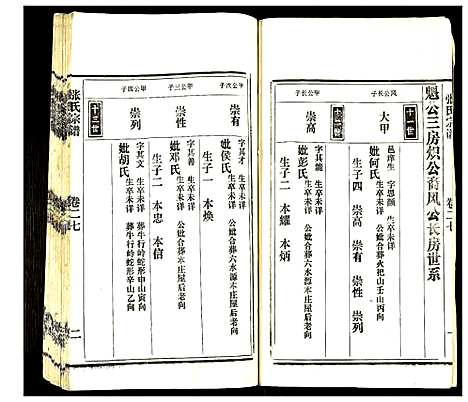 张氏宗谱
卷二七
魁公三房炽公裔凤公长房世系
十一世
凤公长子
大甲
邑庠生 字思颜
生卒未详
妣何氏
公妣合葬火把山壬山丙向
生子四 崇高 崇有 崇性 崇列
十二世
甲公长子
崇高
字其能
生卒未详
妣彭氏
公妣合葬六水源不庄屋后老向
生子二 本耀 本炳
甲公次子
崇有
字其才
生卒未详
妣侯氏
公妣合葬六水源不庄屋后老向
生子一 本焕
甲公三子
崇性
字其善
生卒未详
妣邓氏
公妣合葬六水源不庄屋后老向
生子二 本忠 本信
甲公四子
十二世
崇列
字其文
生卒未详
葬牛行岭蛇形申山寅向
妣胡氏
生卒未详
葬牛行岭蛇形辛山乙向
张氏宗谱
卷二七
二